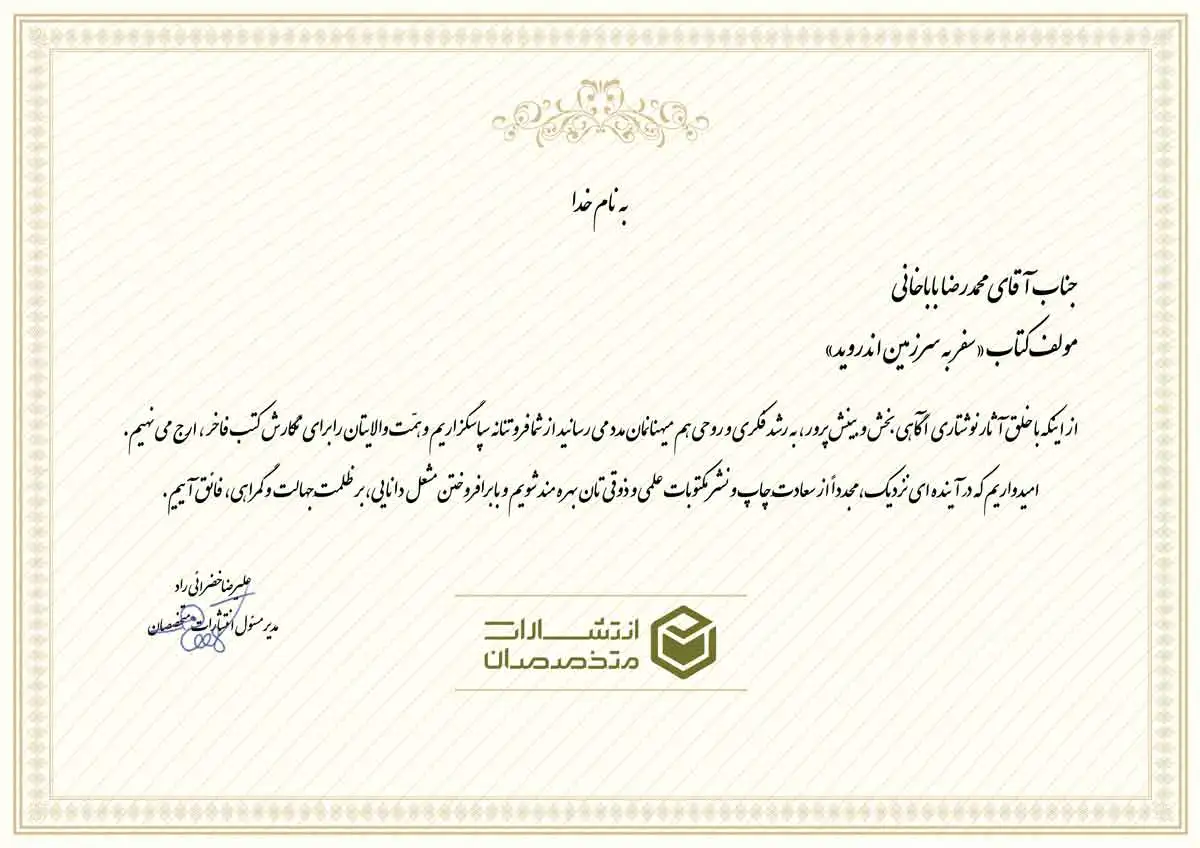 به نام خدا
جناب آقای محمدرضا باباخانی
مولف کتاب «سفر به سرزمین اندروید»
از اینکه با خلق آثار نوشتاری آگاهی بخش و بینش پرور، به رشد فکری و روحی هم میهنانمان مدد می رسانید از شما فروتنانه سپاسگزاریم و همّت والایتان را برای نگارش کتب فاخر، ارج می نهیم.
امیدواریم که در آینده ای نزدیک، مجدداً از سعادت چاپ و نشر مکتوبات علمی و ذوقی تان بهره مند شویم و با برافروختن مشعل دانایی، بر ظلمت جهالت و گمراهی، فائق آییم.
علیرضا خضرائی راد
مدیر مسئول انتشارات متخصصان
انتشارات
متخصصان